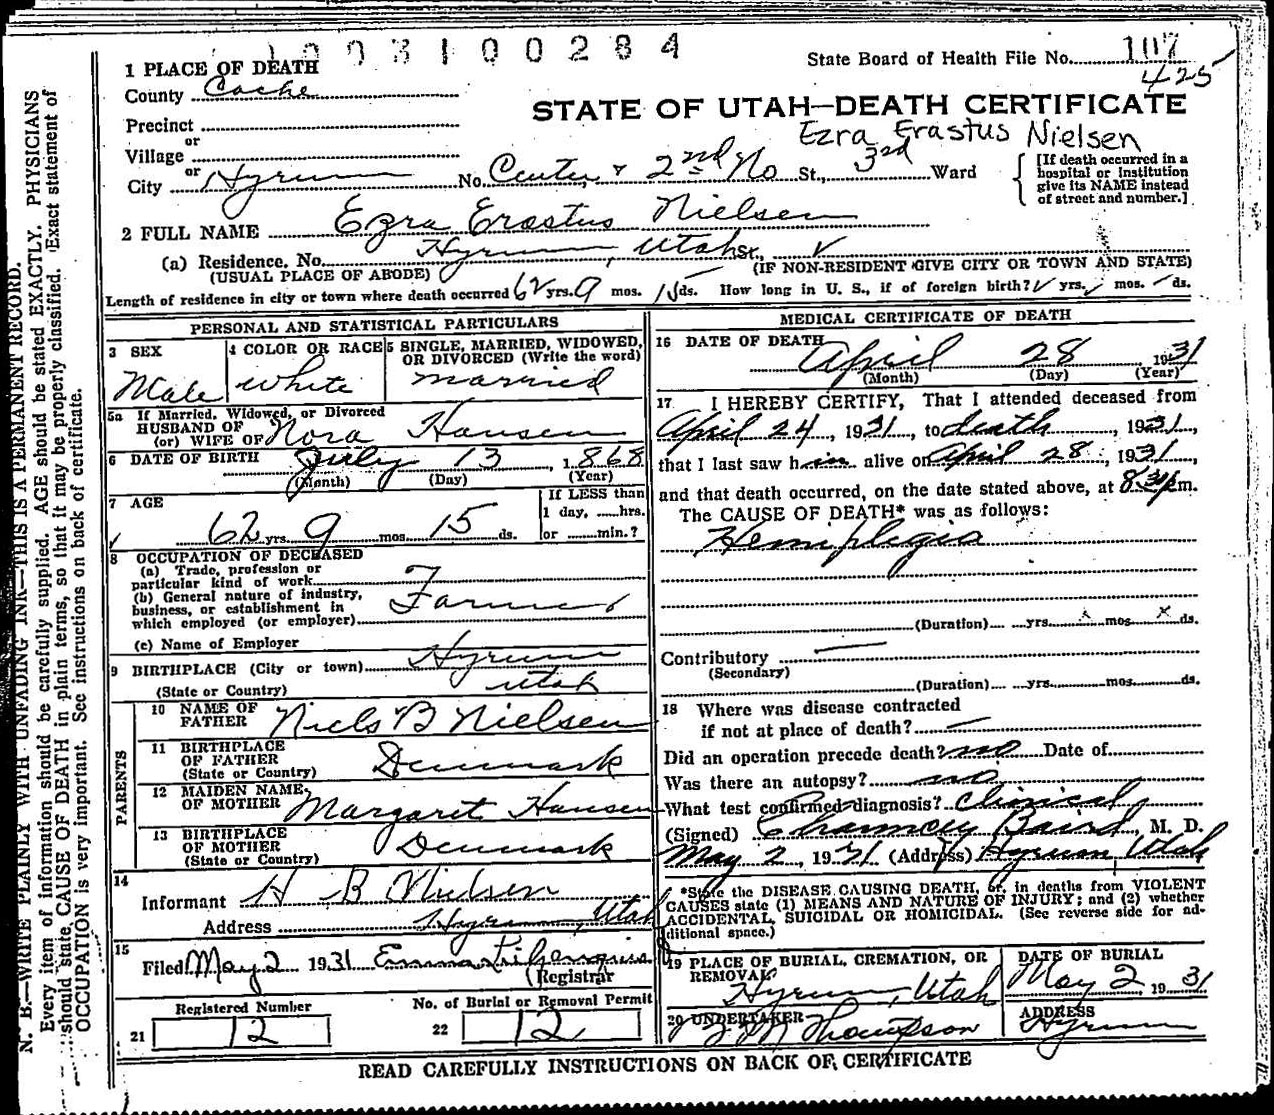 1003100284
State Board of Health File No. 107
425
1 PLACE OF DEATH
County Cache
STATE OF UTAH—DEATH CERTIFICATE
Precinct
or
Village
Ezra Erastus Nielsen
or
City Hyrum No. Center & 2nd No St., 3rd Ward
[If death occurred in a
hospital or institution
give its NAME instead
of street and number.]
2 FULL NAME Ezra Erastus Nielsen
(a) Residence. No. Hyrum, Utah St.,
(USUAL PLACE OF ABODE) (IF NON-RESIDENT GIVE CITY OR TOWN AND STATE)
Length of residence in city or town where death occurred 62 yrs. 9 mos. 15 ds. How long in U. S., if of foreign birth? yrs. mos. ds.
PERSONAL AND STATISTICAL PARTICULARS
3 SEX
Male
4 COLOR OR RACE
White
5 SINGLE, MARRIED, WIDOWED,
OR DIVORCED (Write the word)
married
5a If Married, Widowed, or Divorced
HUSBAND OF
(or) WIFE OF Nora Hansen
6 DATE OF BIRTH July 13, 1868
(Month) (Day) (Year)
7 AGE
62 yrs. 9 mos. 15 ds.
If LESS than
1 day, ......hrs.
or ........min.?
8 OCCUPATION OF DECEASED
(a) Trade, profession or
particular kind of work
(b) General nature of industry,
business, or establishment in
which employed (or employer)
Farmer
(c) Name of Employer
9 BIRTHPLACE (City or town) Hyrum
(State or Country) Utah
PARENTS
10 NAME OF
FATHER Niels B Nielsen
11 BIRTHPLACE
OF FATHER
(State or Country) Denmark
12 MAIDEN NAME
OF MOTHER Margaret Hansen
13 BIRTHPLACE
OF MOTHER
(State or Country) Denmark
14
Informant H B Nielsen
Address Hyrum, Utah
15
Filed May 2 1931 Emma
(Registrar
Registered Number
21 12
No. of Burial or Removal Permit
22 12
MEDICAL CERTIFICATE OF DEATH
16 DATE OF DEATH
April 28, 1931
(Month) (Day) (Year)
17 I HEREBY CERTIFY, That I attended deceased from
April 24, 1931, to death, 1931,
that I last saw him alive on April 28, 1931,
and that death occurred, on the date stated above, at m.
The CAUSE OF DEATH* was as follows:
Hemiplegia
(Duration) yrs. x mos. x ds.
Contributory
(Secondary)
(Duration) yrs. mos. ds.
18 Where was disease contracted
if not at place of death?
Did an operation precede death? no Date of
Was there an autopsy? no
What test confirmed diagnosis? Clinical
(Signed) Chauncey Baird, M. D.
May 2, 1931 (Address) Hyrum, Utah
*State the DISEASE CAUSING DEATH, or, in deaths from VIOLENT
CAUSES state (1) MEANS AND NATURE OF INJURY; and (2) whether
ACCIDENTAL, SUICIDAL OR HOMICIDAL. (See reverse side for ad-
ditional space.)
19 PLACE OF BURIAL, CREMATION, OR
REMOVAL?
Hyrum, Utah
DATE OF BURIAL
May 2, 1931
20 UNDERTAKER
Thompson
ADDRESS
Hyrum
READ CAREFULLY INSTRUCTIONS ON BACK OF CERTIFICATE
N. B.—WRITE PLAINLY WITH UNFADING INK—THIS IS A PERMANENT RECORD.
Every item of information should be carefully supplied. AGE should be stated EXACTLY. PHYSICIANS
should state CAUSE OF DEATH in plain terms, so that it may be properly classified. Exact statement of
OCCUPATION is very important. See instructions on back of certificate.